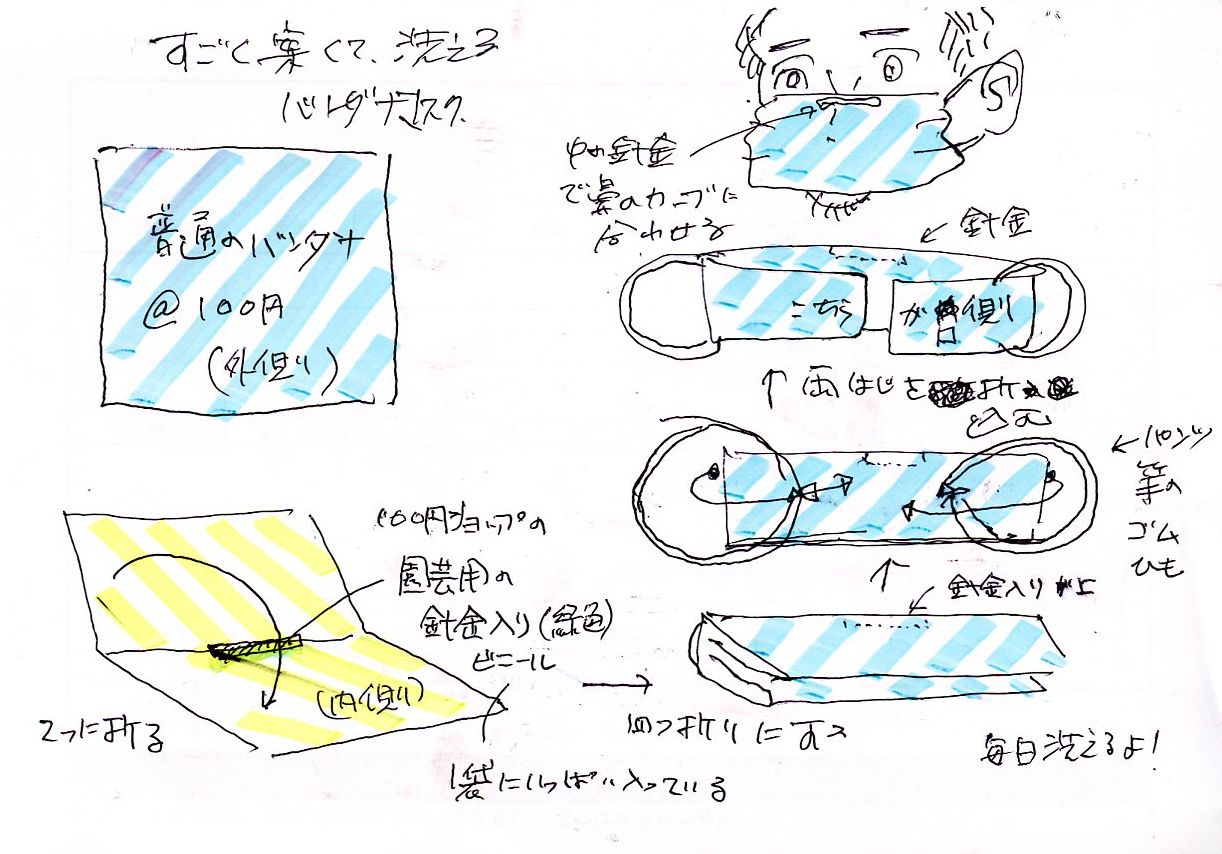 すごく楽くて、洗える
バンダナマスク
普通のバンダナ
@100円
(外側)
中の針金
で鼻のカーブに
合わせる
針金
こちらが口側
両はじを折り
込む
パンツ
等の
ゴム
ひも
針金入りが上
100円ショップの
園芸用の
針金入り(緑色)
ビニール
(内側)
2つに折る
1袋にいっぱい入っている
四つ折りにする
毎日洗えるよ!